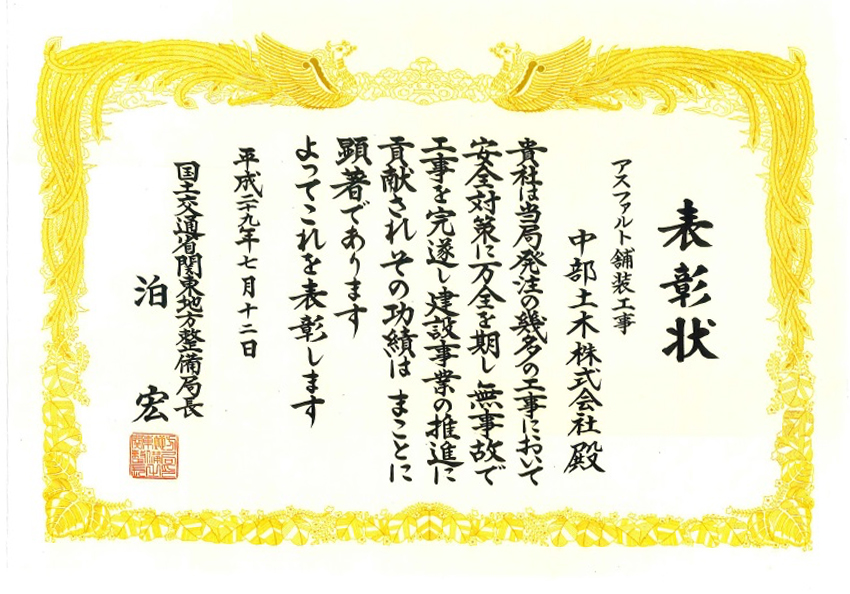 表彰状
アスファルト舗装工事
中部土木株式会社殿
貴社は当局発注の幾多の工事において
安全対策に万全を期し無事故で
工事を完遂し建設事業の推進に
貢献されその功績は まことに
顕著であります
よってこれを表彰します
平成二十九年七月十二日
国土交通省関東地方整備局長
泊宏